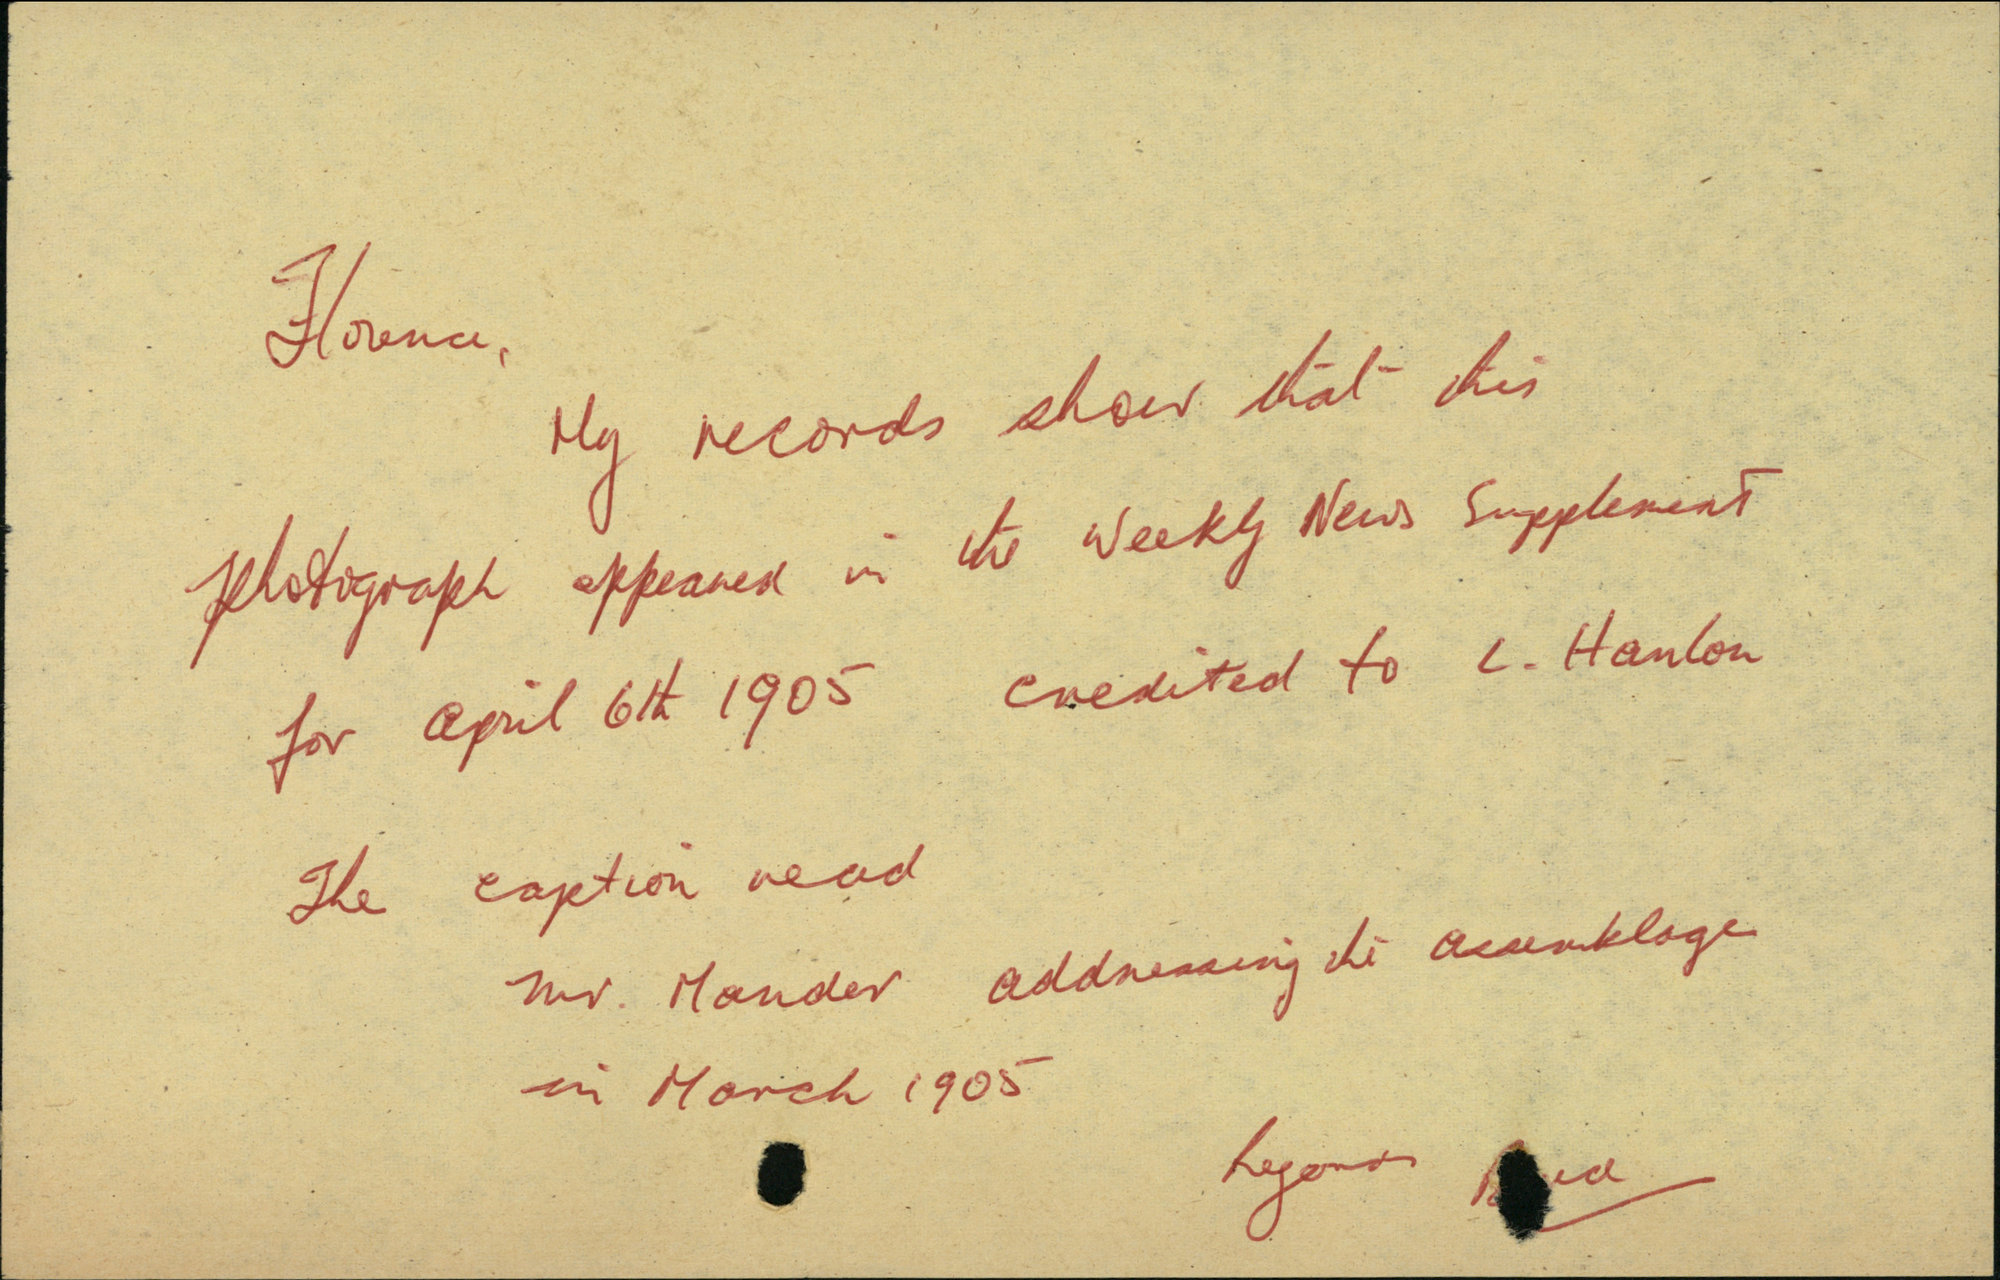 Florence,
My records show that this
photograph appeared in the Weekly News Supplement
for April 6th 1905 credited to L. Hanlon
The caption read
Mr. Mander addressing the assemblage
in March 1905
Regards